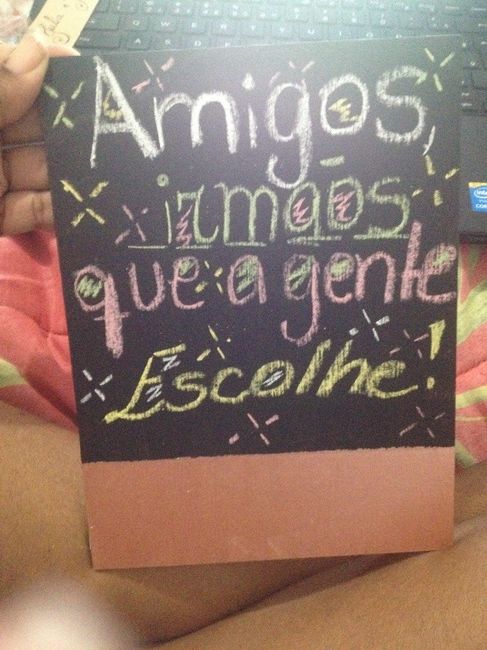 Amigos,
irmãos
que a gente
Escolhe!
intel